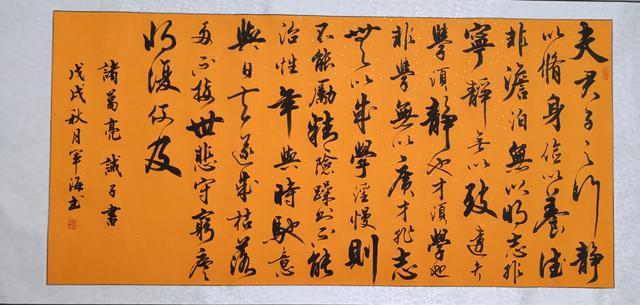 夫君子之行靜
以脩身儉以養德
非澹泊無以明志非
寧靜無以致遠夫
學須靜也才須學也
非學無以廣才非志
無以成學淫慢則
不能勵精險躁則不能
治性年與時馳意
與日去遂成枯落
多不接世悲守窮廬
將復何及
諸葛亮誡子書
戊戌秋月軍海书